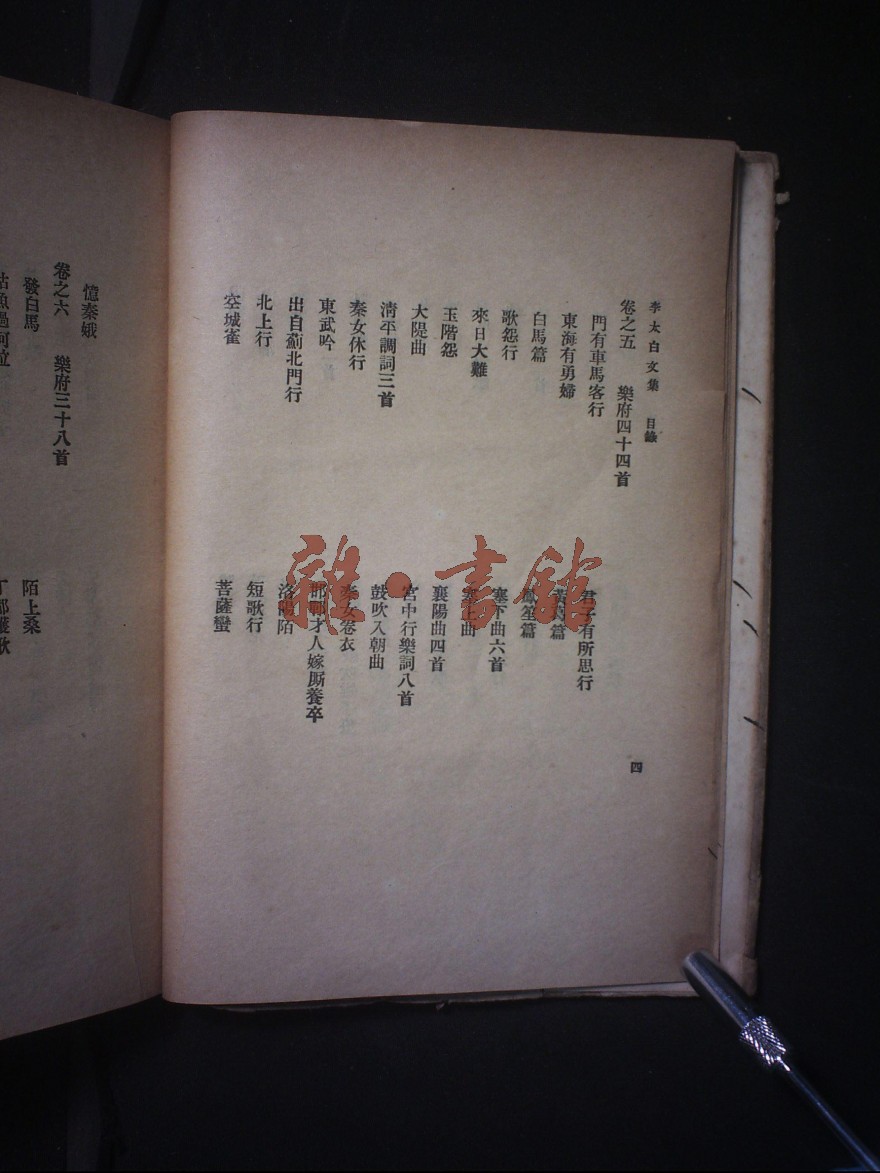 李太白文集 目錄 四
卷之五 樂府四十四首
門有車馬客行 君子有所思行
東海有勇婦 黃葛篇
白馬篇 鳳笙篇
歌怨行 塞下曲六首
來日大難 塞上曲
玉階怨 襄陽曲四首
大隄曲 宮中行樂詞八首
清平調詞三首 鼓吹入朝曲
秦女休行 秦女卷衣
東武吟 邯鄲才人嫁厮養卒
出自薊北門行 洛陽陌
北上行 短歌行
空城雀 菩薩蠻
憶秦娥
卷之六 樂府三十八首
發白馬 陌上桑
雜·書館